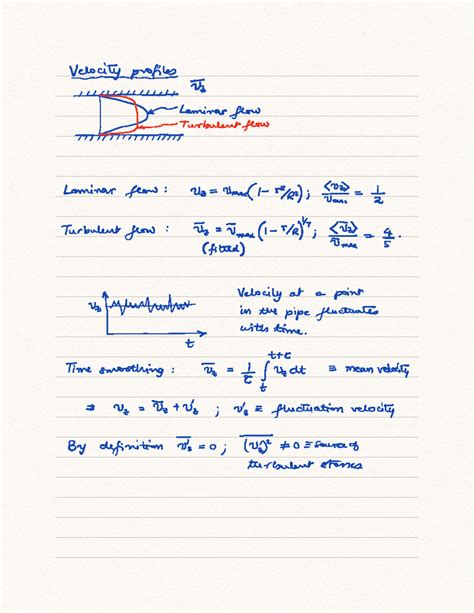 Velocity profiles
v̄z
Laminar flow
Turbulent flow
Laminar flow : vz = vmax(1 - r²/R²) ; <vz>/vmax = 1/2
Turbulent flow : v̄z = v̄max(1 - r/R)^1/7 ; <v̄z>/v̄max = 4/5 .
(fitted)
vz
t
Velocity at a point
in the pipe fluctuates
with time.
Time smoothing : v̄z = 1/τ ∫_t^{t+τ} vz dt ≡ mean velocity
⇒ vz = v̄z + v'z ; v'z ≡ fluctuation velocity
By definition v̄'z = 0 ; \overline{(v'z)²} ≠ 0 ≡ source of
turbulent stresses